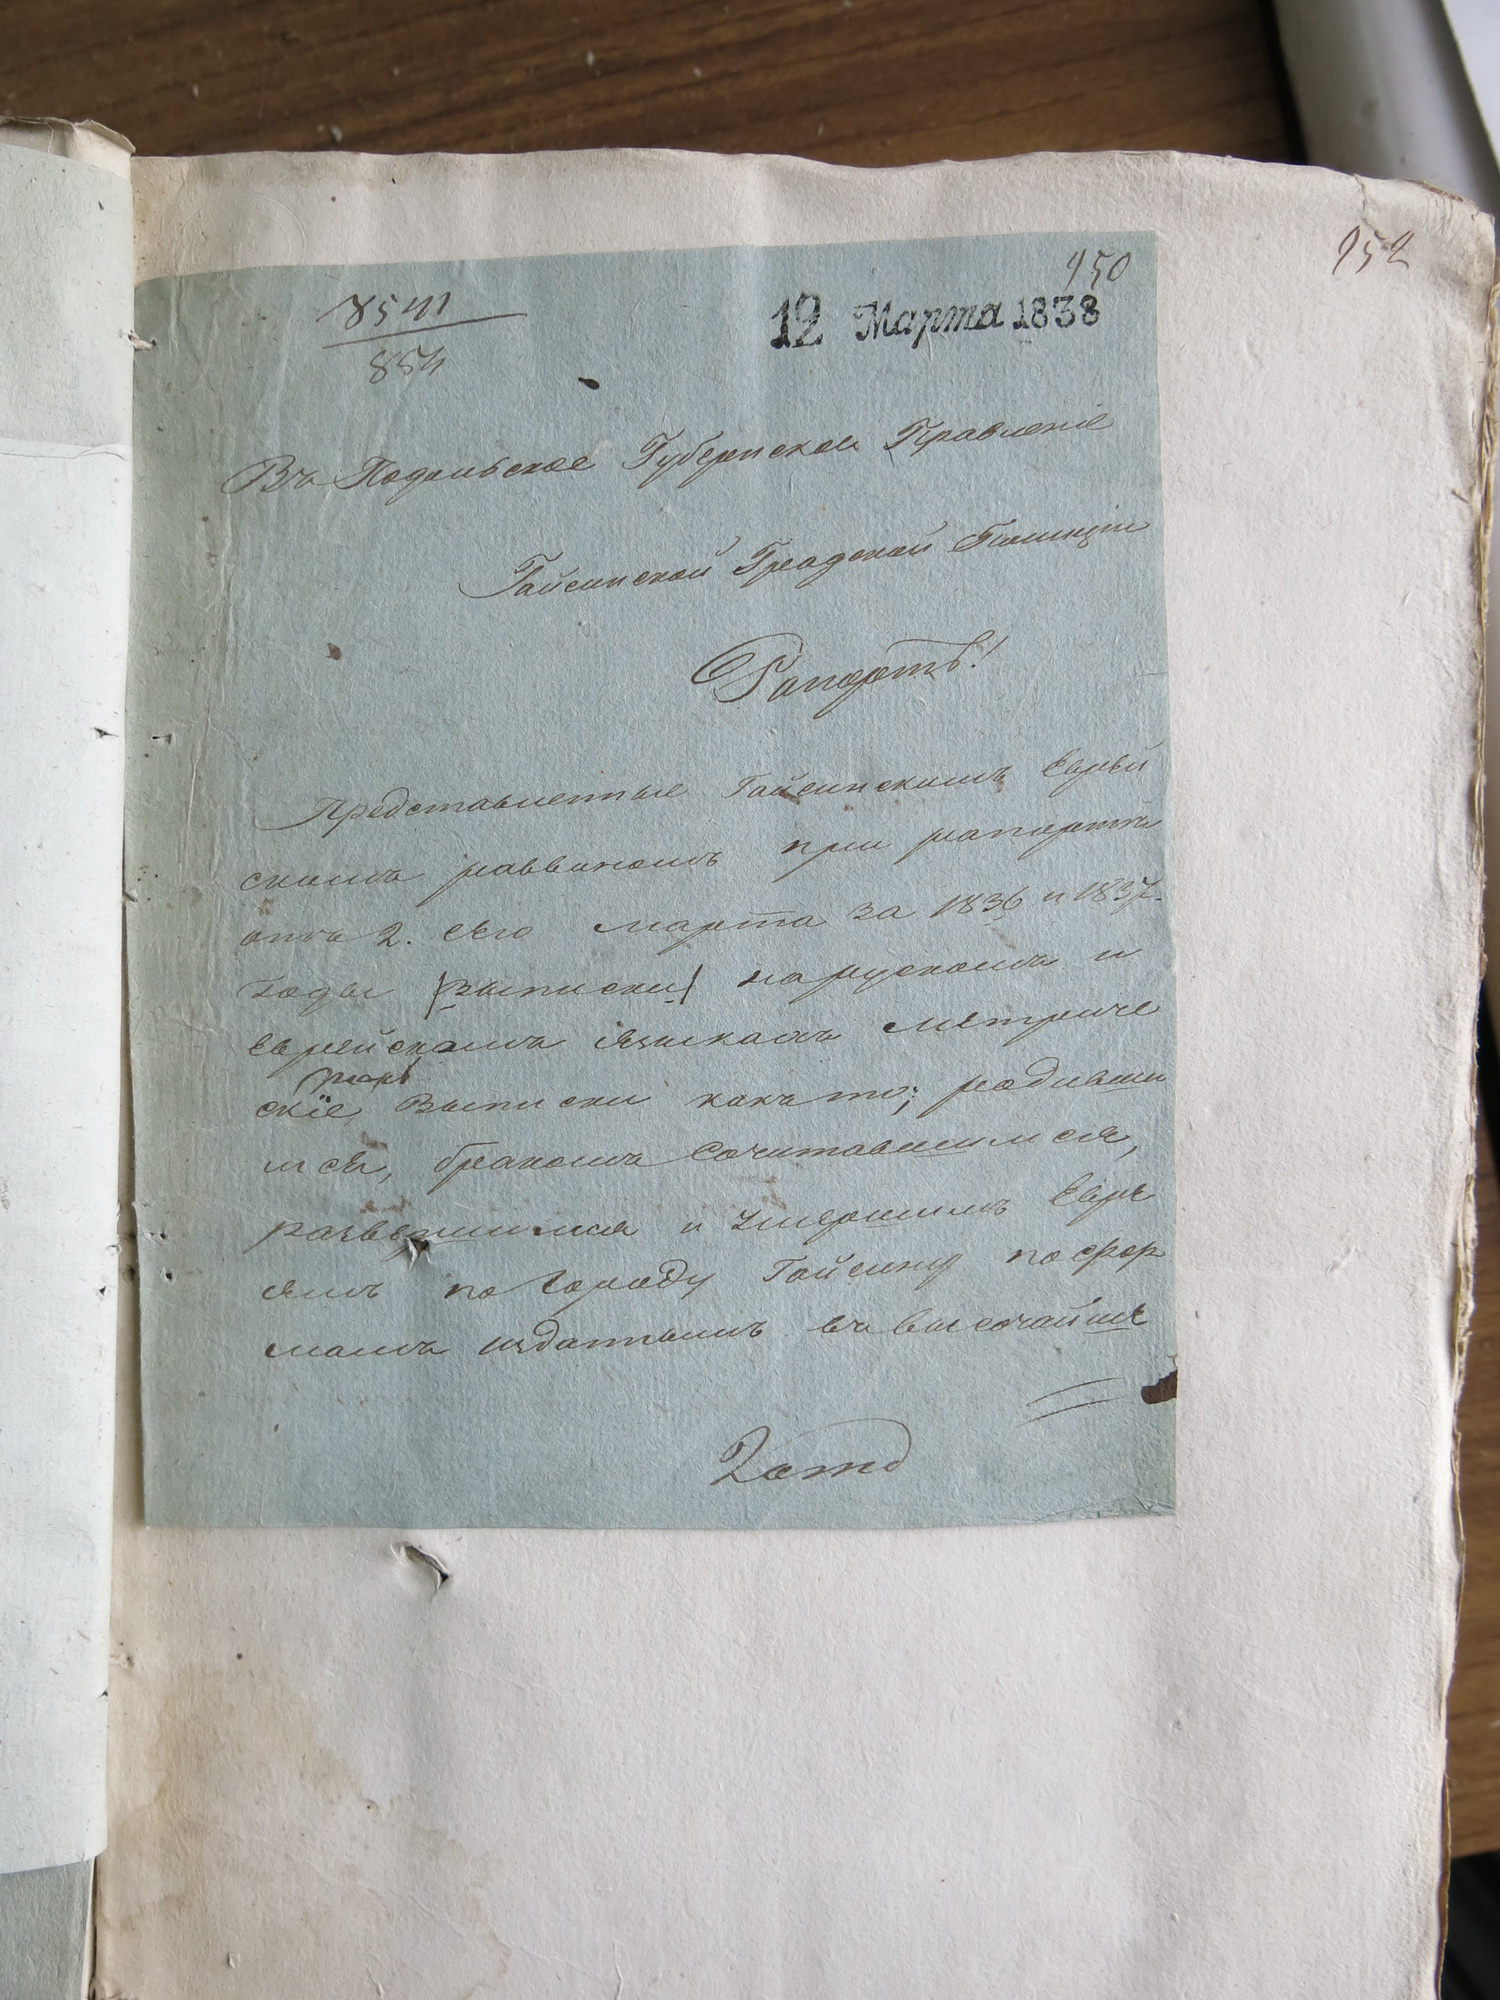 952
950
8541
854
12 Марта 1838
Въ Подольское Губернское Правленіе
Гайсинской Градской Полиціи
Рапортъ!
Представленные Гайсинскимъ Еврей
скимъ раввиномъ при рапортѣ
отъ 2. сего марта за 1836 и 1837.
годы (выписки) на рускомъ и
Еврейскомъ языкахъ метриче
скіе Выписки какъ то; родивши
мся, бракомъ Сочитавшимся,
разведшимся и умершимъ Евре
ямъ по Городу Гайсину по фор
мамъ изданнымъ въ высочайше
2 отд